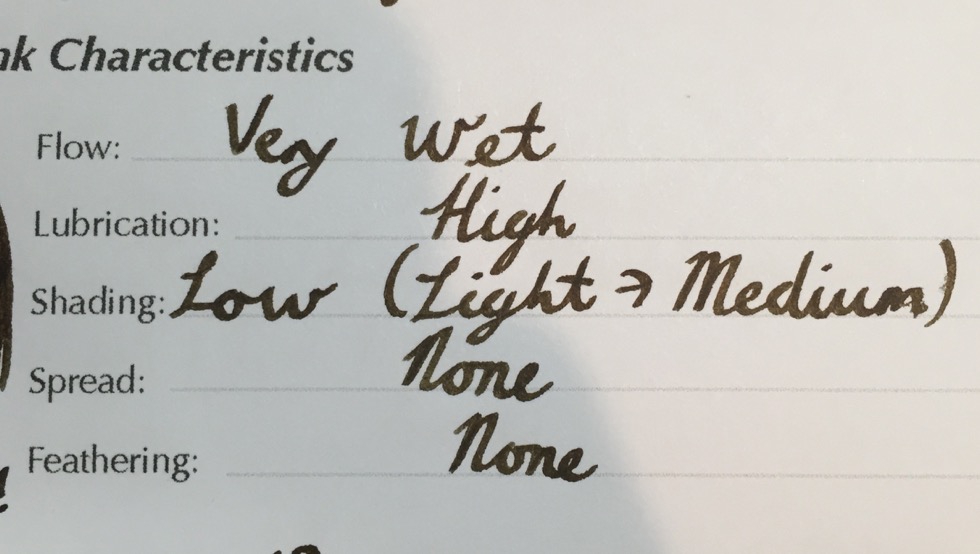 nk Characteristics
Flow: Very Wet
Lubrication: High
Shading: Low (Light → Medium)
Spread: None
Feathering: None